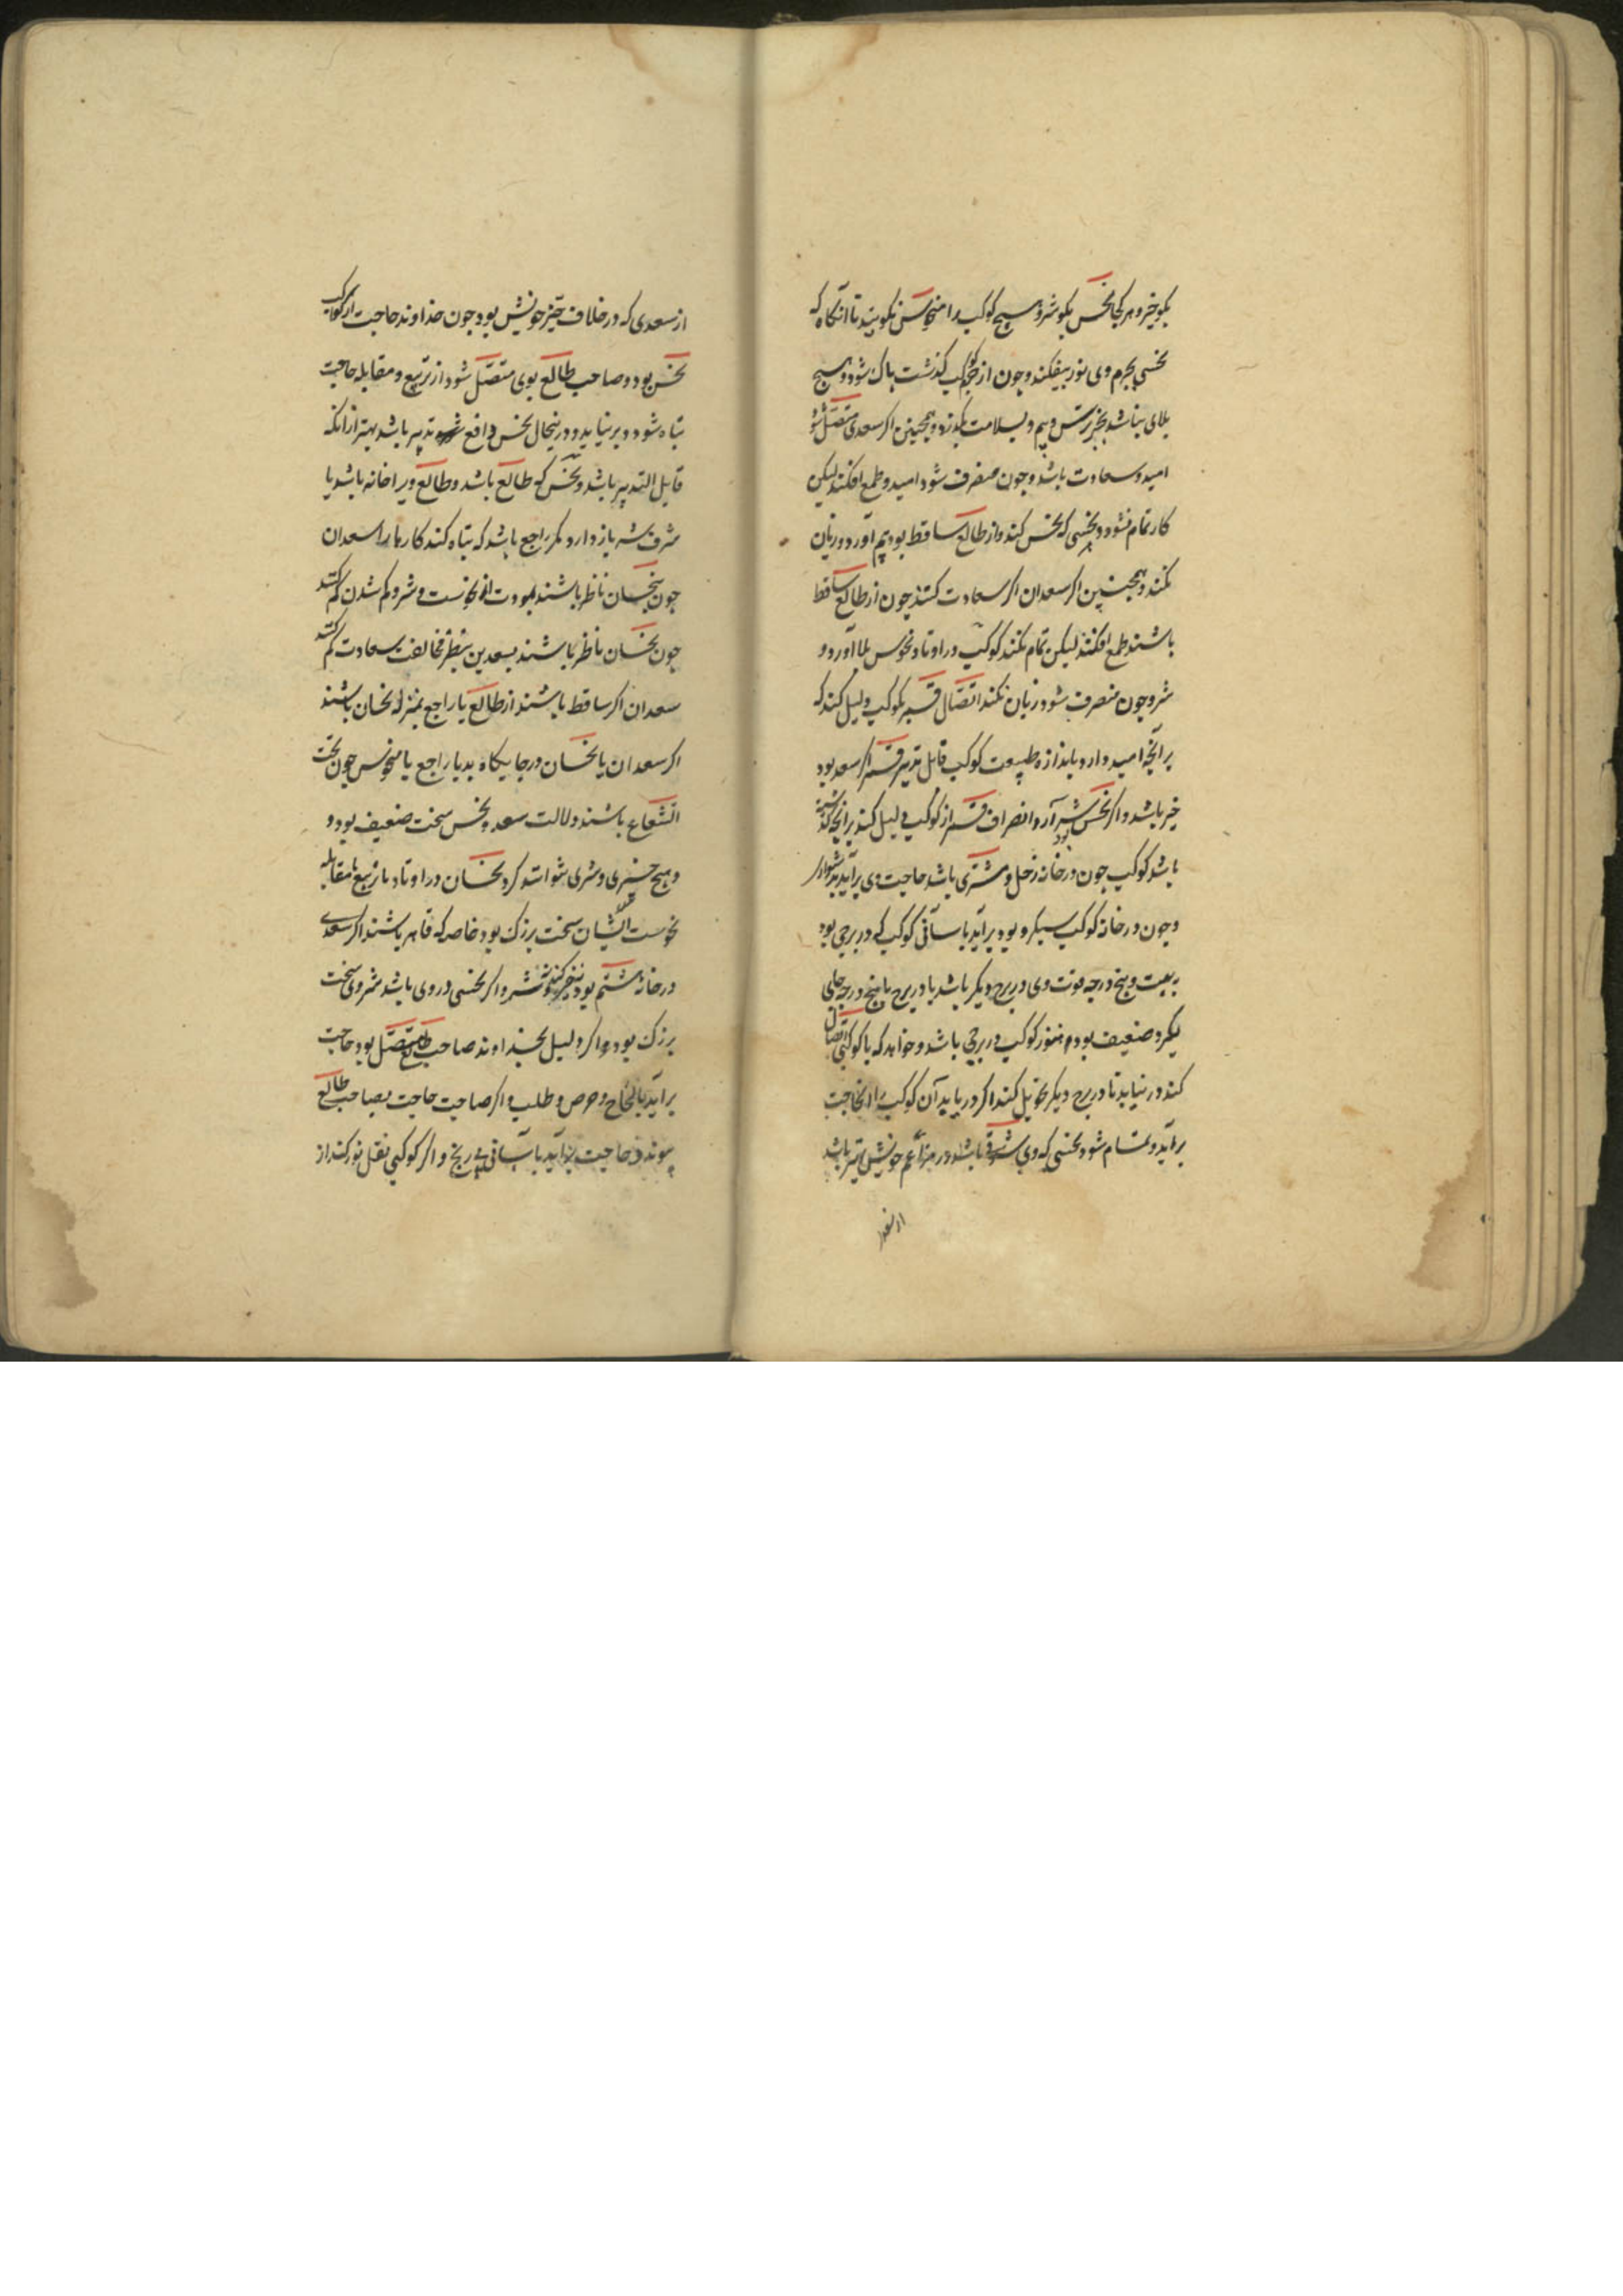 بکو خیر و هر کجا نحس بکو شر و هیچ کوکب را منحوس نکویند تا آنکاه که
نحسی بجرم وی نور بیفکند و چون از جرم کوکب کذشت پاک شود و هیچ
بلای نباشد بجز ترس و بیم و بسلامت بکذرد و همچنین اکر سعدی متصل شود
امید و سعادت باشد و چون منصرف شود امید و طمع افکند لیکن
کار تمام نشود و نحسی که نحس کند و از طالع ساقط بود بیم آورد و زیان
نکند و همچنین اکر سعدان اکر سعادت کنند چون از طالع ساقط
باشند طمع افکنند لیکن تمام نکنند کوکب در اوتاد و نحوس بلا آورد و
شر و چون منصرف شود زیان نکند اتصال قمر بکوکب دلیل کند که
برآنچه امید دارد باندازه طبیعت کوکب قابل تدبیر قمر اکر سعد بود
خیر باشد و اکر نحس بود شر آرد و انصراف قمر از کوکب دلیل کند برانچه کذشته
باشد کوکب چون در خانه زحل و مشتری باشد حاجت وی برآید بدشواری
و چون در خانه کوکب سبکرو بود برآید بآسانی کوکب که در برجی بود
به بیست و پنج درجه قوت وی در برج دیکر باشد یا در برج با پنج درجه جای
بکیرد ضعیف بود هنوز کوکب در برجی باشد و خواهد که با کوکبی اتصال
کند در نیابد تا در برج دیکر تحویل کند اکر دریابد آن کوکب را آنحاجت
برآید و تمام شود نحسی که وی شرقی باشد در مزاعم خویش بهتر باشد
از سعد
از سعدی که در خلاف حیز خویش بود چون خداوند حاجت از کواکب
نحس بود و صاحب طالع بوی متصل شود از تربیع و مقابله حاجت
تباه شود و برنیاید و درینحال نحس دافع تدبیر باشد بهتر از انکه
قابل التدبیر باشد و نحس که طالع باشد و طالع ویرا خانه باشد یا
شرف شر باز دارد مکر راجع باشد که تباه کند کارها را سعدان
چون بنحسان ناظر باشند بمودت از نحوست و شر و کم شدن کم کنند
چون نحسان ناظر باشند بسعدین بنظر مخالفت سعادت کم کنند
سعدان اکر ساقط باشند از طالع یا راجع بمنزله نحسان باشند
اکر سعدان یا نحسان در جایکاه بد یا راجع یا منحوس چون تحت
الشعاع باشند دلالت سعد و نحس سخت ضعیف بود و
و هیچ خیری و شری نتوانند کرد نحسان در اوتاد یا تربیع یا مقابله
نحوست ایشان سخت بزرک بود خاصه که قاهر باشند اکر سعدی
در خانه ششم بود نه خیر کند و نه شر و اکر نحسی در وی باشد شر وی سخت
بزرک بود و اکر دلیل بخداوند صاحب طالع متصل بود حاجت
برآید بالحاح و حرص و طلب و اکر صاحب حاجت بصاحب طالع
پیوندد حاجت برآید بآسانی بی رنج و اکر کوکبی نقل نور کند از